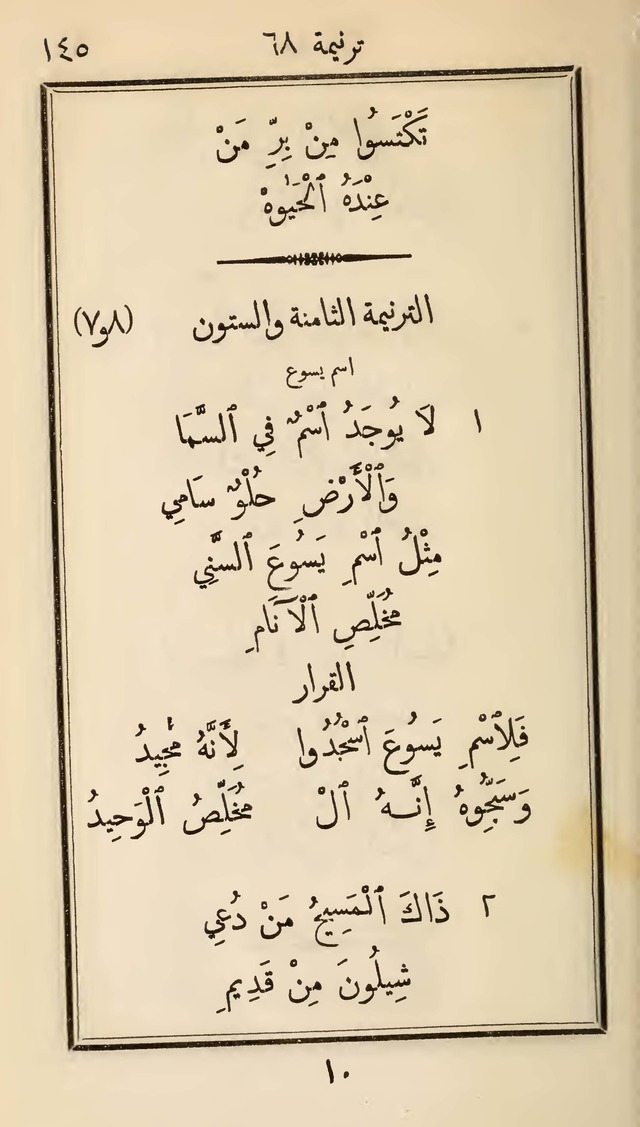 ترنيمة ٦٨ ١٤٥
تَكْتَسُوا مِنْ بِرِّ مَنْ
عِنْدَهُ ٱلْحَيٰوةْ
الترنيمة الثامنة والستون (٨و٧)
اسم يسوع
١ لَا يُوجَدُ ٱسْمٌ فِي ٱلسَّمَا
وَٱلْأَرْضِ حُلْوٌ سَامِي
مِثْلُ ٱسْمِ يَسُوعَ ٱلسَّنِي
مُخَلِّصِ ٱلْآنَامِ
القرار
فَلِٱسْمِ يَسُوعَ ٱسْجُدُوا لِأَنَّهُ مَجِيدُ
وَسَبِّحُوهُ إِنَّهُ ٱلْ مُخَلِّصُ ٱلْوَحِيدُ
٢ ذَاكَ ٱلْمَسِيحُ مَنْ دُعِي
شِيلُونَ مِنْ قَدِيمِ
١٠